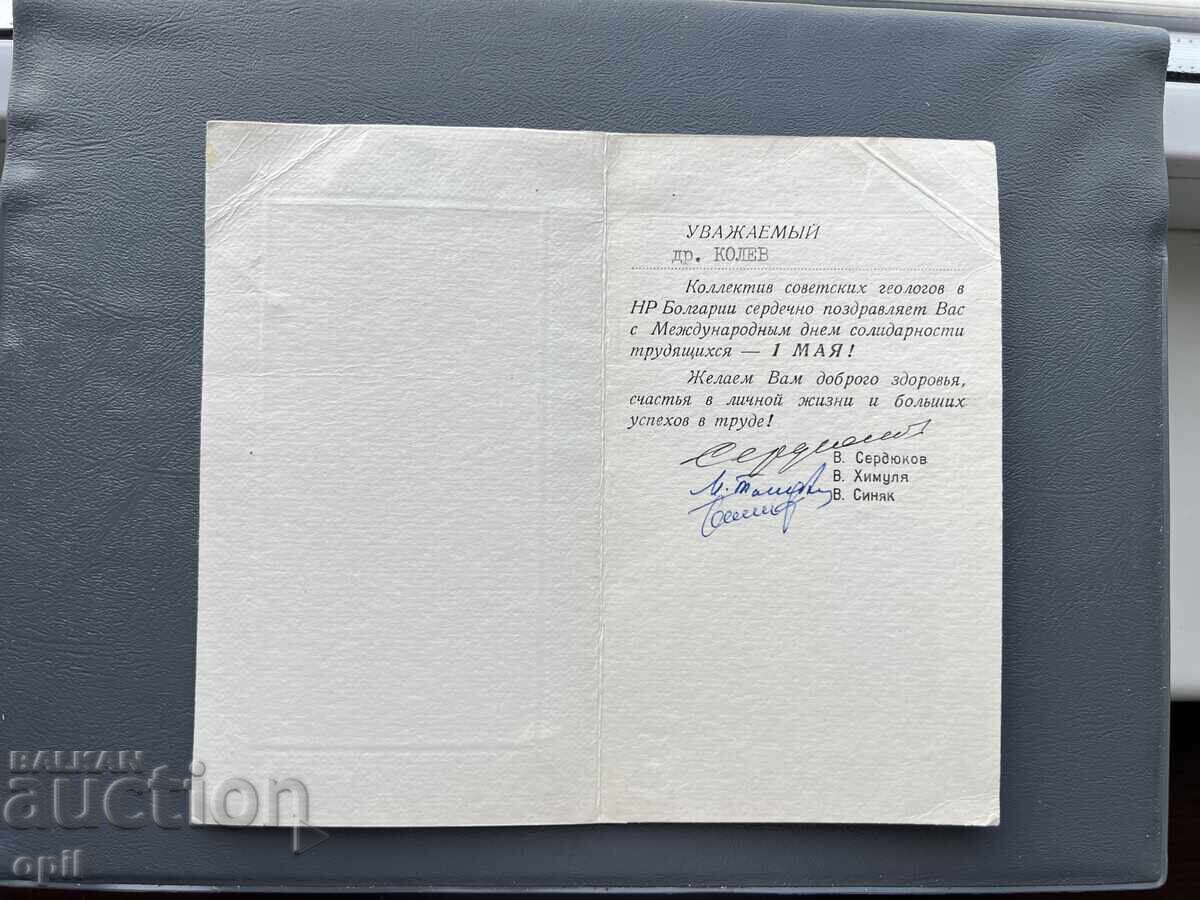 УВАЖАЕМЫЙ
др. КОЛЕВ
Коллектив советских геологов в
НР Болгарии сердечно поздравляет Вас
с Международным днем солидарности
трудящихся — 1 МАЯ!
Желаем Вам доброго здоровья,
счастья в личной жизни и больших
успехов в труде!
В. Сердюков
В. Химуля
В. Синяк
BALKAN
auction
opil